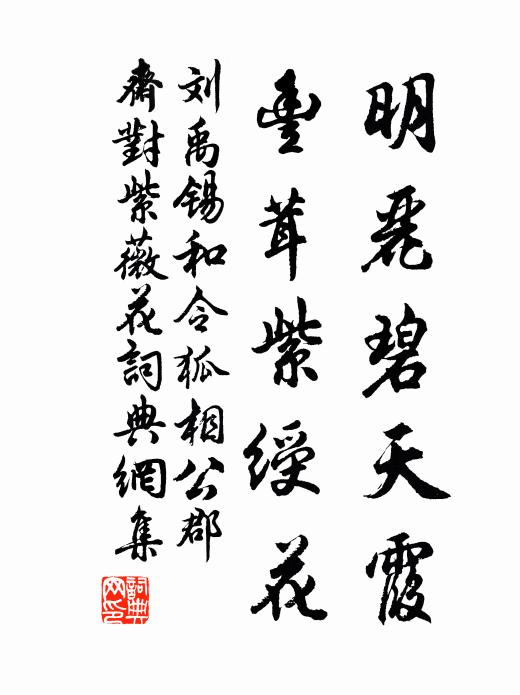 明麗碧天霞
豐茸紫綬花
刘禹锡和令狐相公郡
齋對紫薇花詞典網集
詞典网印